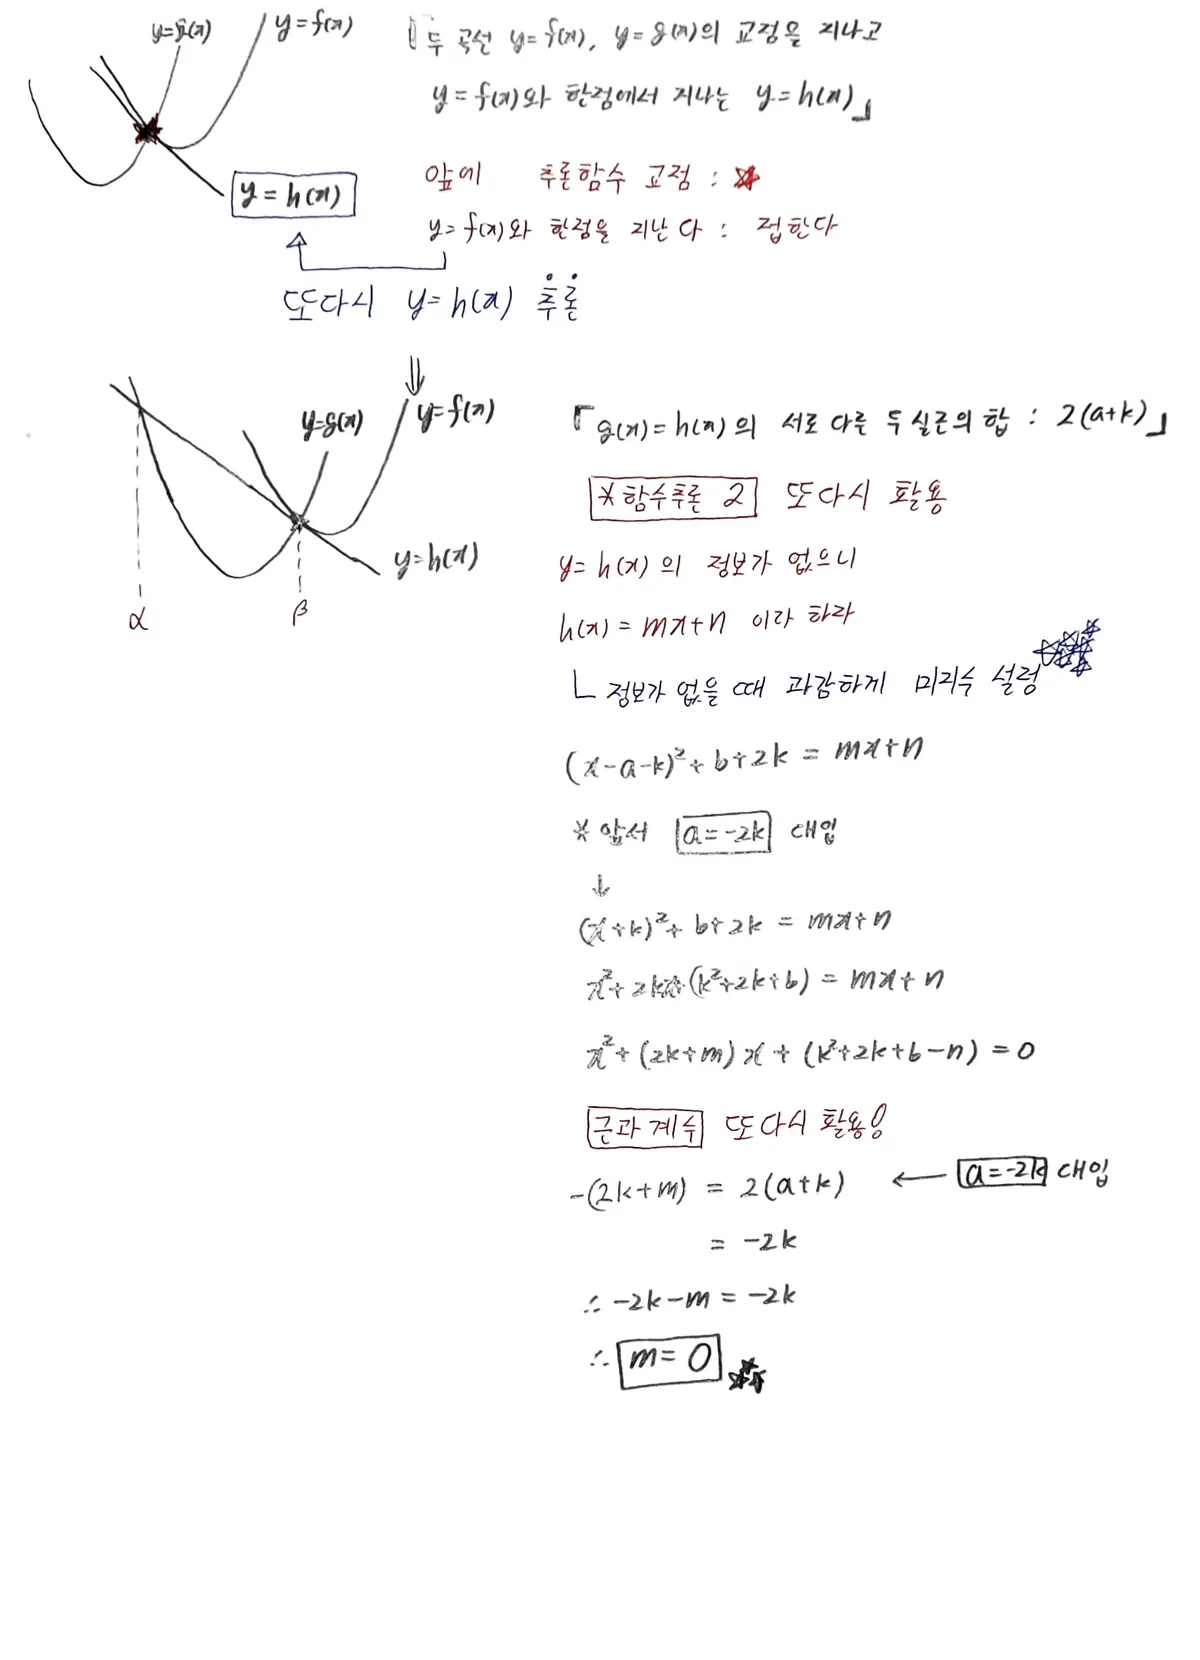 y=g(x) y=f(x)
「두 곡선 y=f(x), y=g(x)의 교점을 지나고
y=f(x)와 한점에서 지나는 y=h(x)」
y=h(x)
앞에 추론함수 교점 : ★
y=f(x)와 한점을 지난다 : 접한다
또다시 y=h(x) 추론
⇓
y=g(x) y=f(x)
y=h(x)
α β
「g(x)=h(x)의 서로 다른 두 실근의 합 : 2(a+k)」
*함수추론 2 또다시 활용
y=h(x)의 정보가 없으니
h(x)=mx+n 이라 하라
ㄴ 정보가 없을 때 과감하게 미지수 설정
(x-a-k)²+b+2k = mx+n
* 앞서 a=-2k 대입
↓
(x+k)²+b+2k = mx+n
x²+2kx+(k²+2k+b) = mx+n
x²+(2k+m)x+(k²+2k+b-n) = 0
근과 계수 또다시 활용!
-(2k+m) = 2(a+k) ← a=-2k 대입
= -2k
∴ -2k-m = -2k
∴ m=0